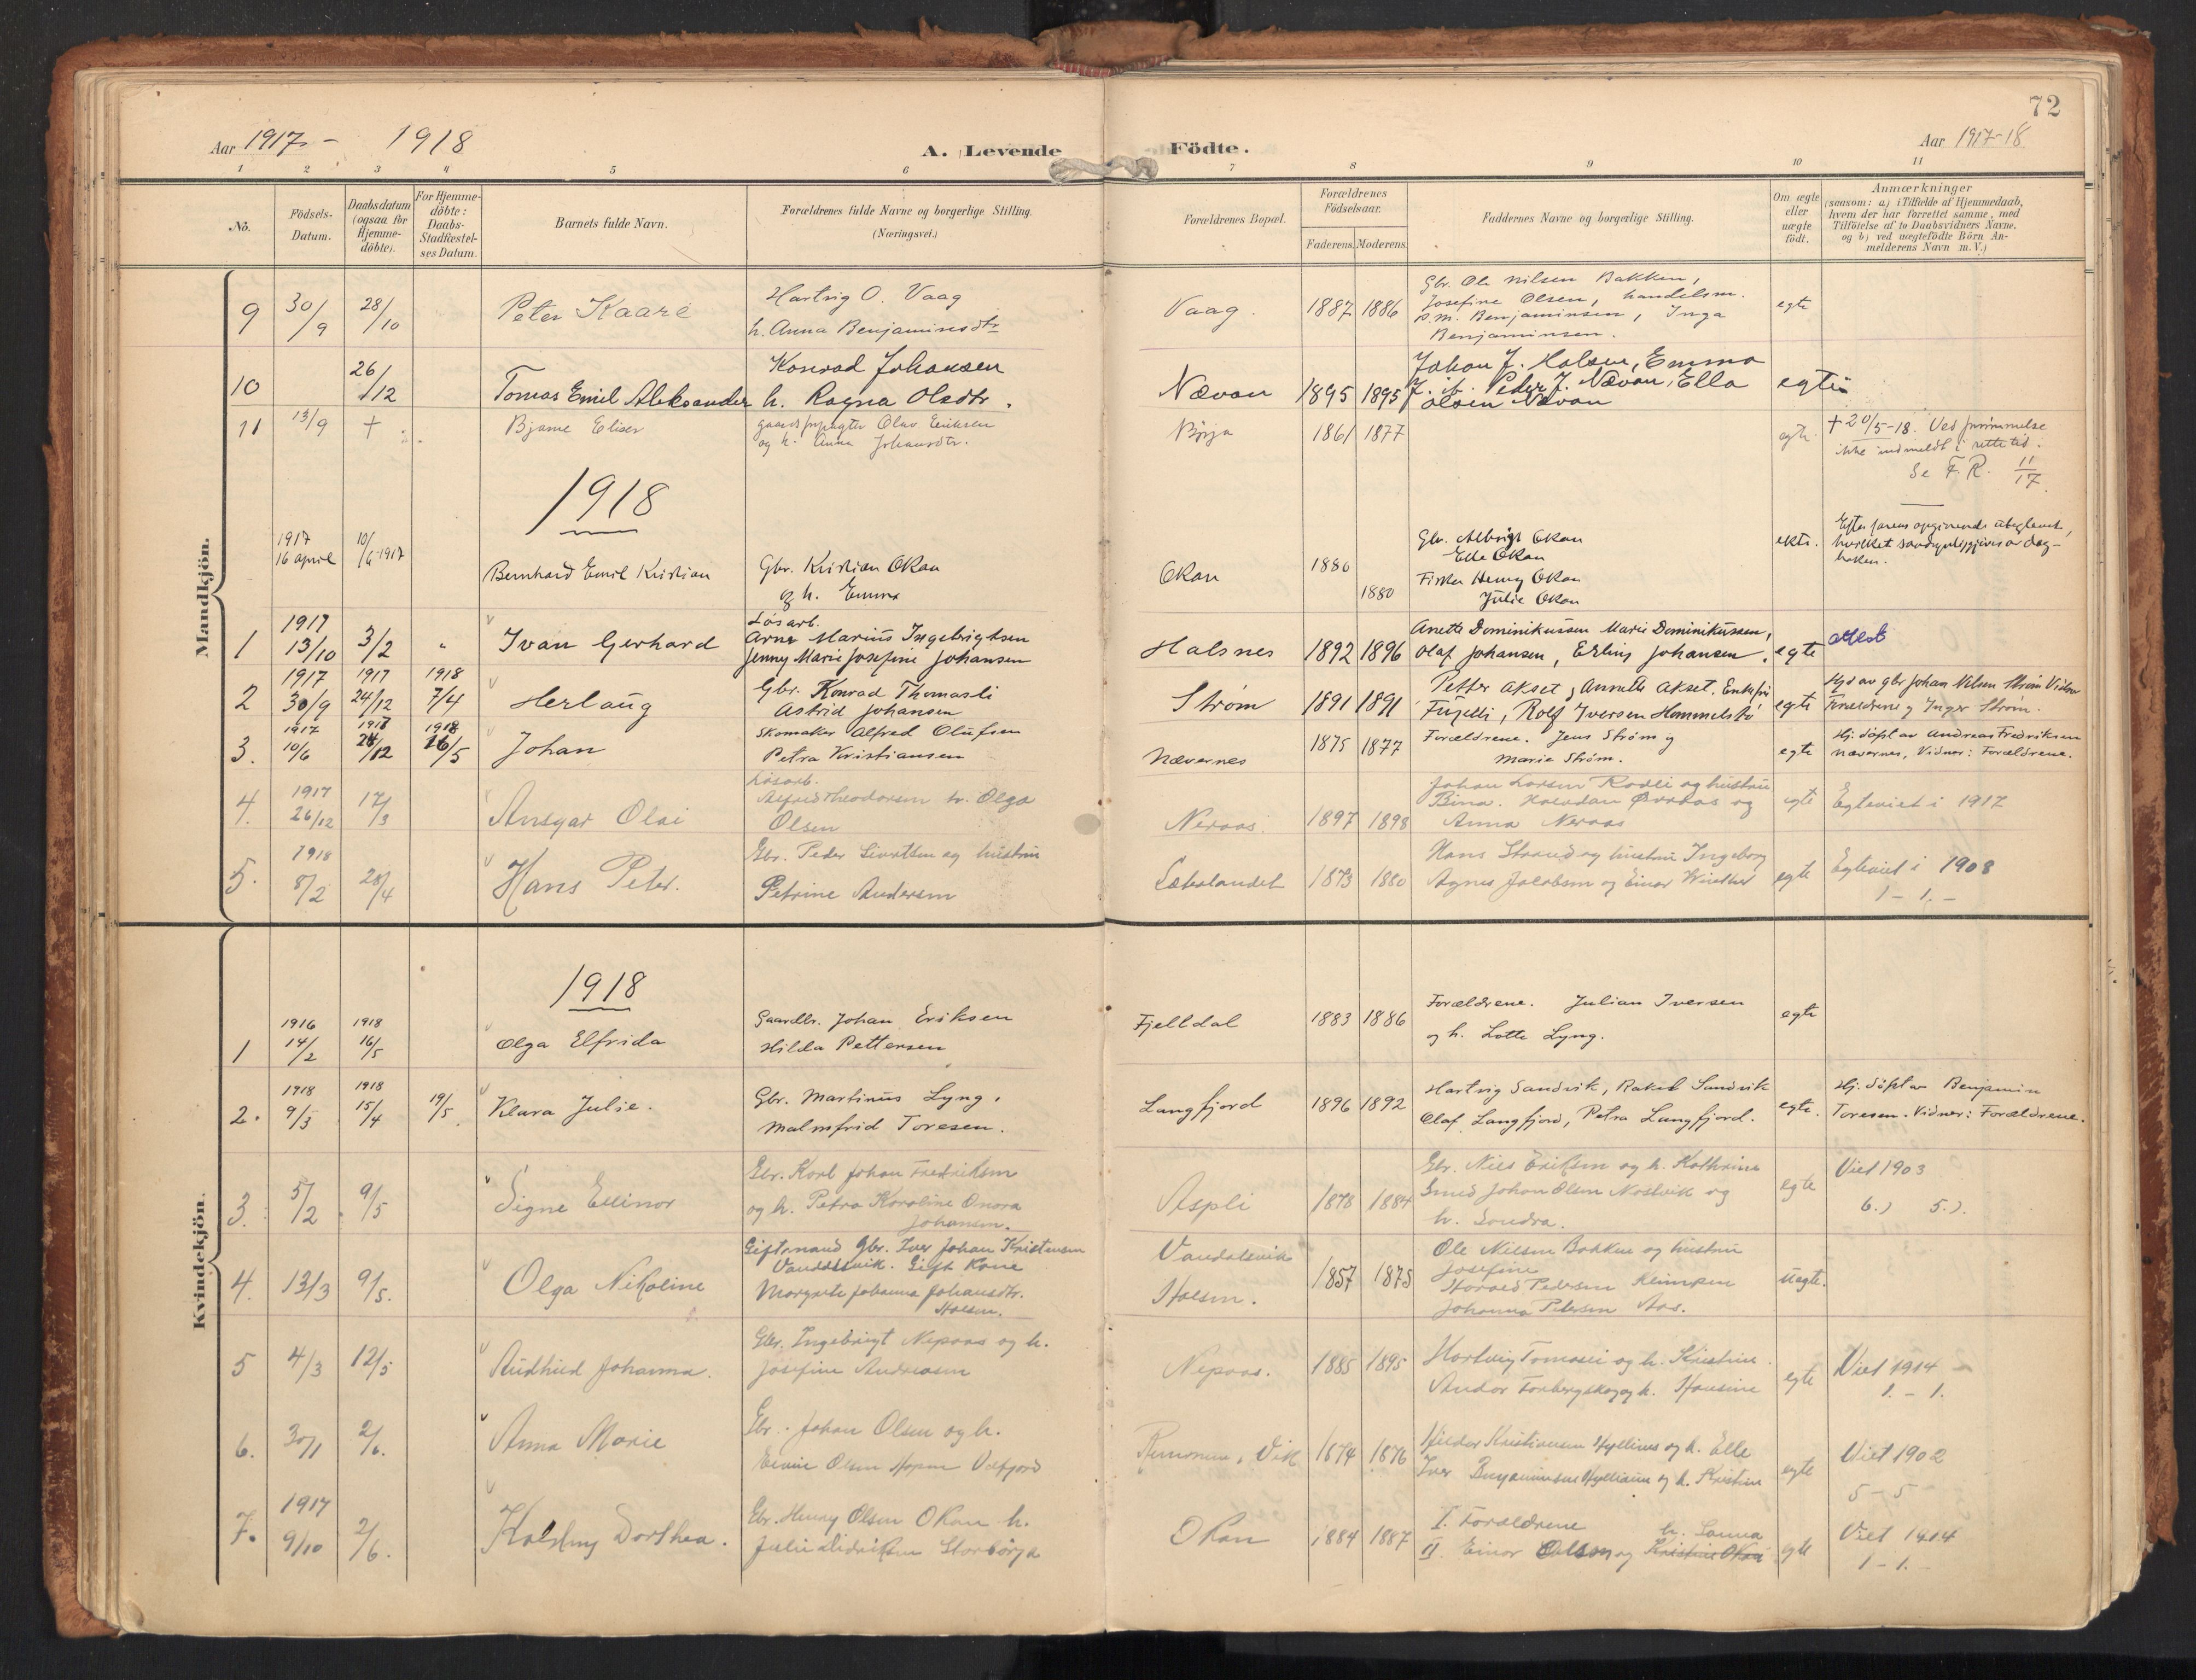 72
Aar 1917 - 1918
A. Levende Födte.
Aar 1917-18
1 2 3 4 5 6 7 8 9 10 11
No.
Födsels-Datum.
Daabsdatum (ogsaa for Hjemmedöbte).
For Hjemmedöbte: Daabs-Stadfæstelses Datum.
Barnets fulde Navn.
Forældrenes fulde Navne og borgerlige Stilling. (Næringsvei.)
Forældrenes Bopæl.
Forældrenes Födselsaar.
Faderens. Moderens.
Faddernes Navne og borgerlige Stilling.
Om ægte eller uægte födt.
Anmærkninger (saasom: a) i Tilfælde af Hjemmedaab, hvem der har forrettet samme, med Tilföielse af to Daabsvidners Navne, og b) ved uægtefödte Börn Anmelderens Navn m. V.)
Mandkjön.
9 30/9 28/10 Peter Kaare
Hartvig O. Vaag
h. Anna Benjaminsdtr
Vaag. 1887 1886
Gbr. Ole Nilsen Bakken,
Josefine Olsen, handelsm.
P.M. Benjaminsen, Inga
Benjaminsen.
egte
10 26/12 Tomas Emil Aleksander
Konrad Johansen
h. Ragna Olsdtr.
Nævan 1895 1895
Johan J. Halsen, Emma
Peder J. Nævan, Ella
Olsen Nævan
egte
11 13/9 + Bjarne Eliser
Olav Eriksen
og h. Anna Johansdtr.
Börja 1861 1877
egte
+ 20/5-18. Ved forsömmelse
ikke indmeldt i rette tid.
Se F.R. 11/17.
1918
1917
16 april 10/6 1917 Bernhard Emil Kristian
Gbr. Kristian Okan
og h. Emma
Okan 1880 1880
Gbr. Albrigt Okan
Elle Okan
Fisker Henry Okan
Julie Okan
ekte.
1 1917 13/10 3/2 " Ivan Gerhard
Løsarb.
Arne Marius Ingebrigtsen
Jenny Marie Josefine Johansen
Halsnes 1892 1896
Anette Dominikussen Marie Dominikussen,
Olaf Johansen, Erling Johansen.
egte
attest
2 1917 30/9 1917 24/12 1918 7/4 Herlaug
Gbr. Konrad Thomasli
Astrid Johansen
Strøm 1891 1891
Petter Akset, Annette Akset.
Rolf Iversen Hommelstø
egte
Hjd av gbr Johan Nilsen Strøm Vidner
Forældrene og Inger Strøm.
3. 1917 10/6 1917 28/12 1918 26/5 Johan
Skomaker Alfred Olufsen
Petra Kristiansen
Nævernes 1875 1877
Forældrene. Jens Strøm og
Marie Strøm.
egte
Hj. døpt av Andreas Fredriksen
Nævernes, Vidner: Forældrene.
4. 1917 26/12 17/3 Ansgar Olai
Løsarb.
Alfred Theodorsen h. Olga
Olsen
Neraas 1897 1898
Johan Larsen Rodli og hustru
Bina. Halvdan og
Anna Neraas
egte
Egteviet i 1917
5. 1918 8/2 28/4 Hans Peter.
Gbr. Peder Sivertsen og hustru
Petrine Andersen
1873 1880
Hans Strand og hustru Ingeborg
Agnes Jakobsen og Einar Winther
egte
Egteviet i 1908
1 - 1. -
Kvindekjön.
1918
1 1916 14/2 1918 16/5 Olga Elfrida
Gaardbr. Johan Eriksen
Hilda Pettersen
Fjelldal 1883 1886
Forældrene. Julian Iversen
og h. Lotte Lyng.
egte
2. 1918 9/3 1918 15/4 19/5 Klara Julie.
Gbr. Martinus Lyng,
Malmfrid Toresen.
Langfjord 1896 1892
Hartvig Sandvik, Rakel Sandvik
Olaf Langfjord, Petra Langfjord.
egte.
Hj. døpt av Benjamin
Toresen. Vidner: Forældrene.
3. 5/2 9/5 Signe Ellinor
Gbr. Karl Johan Fredriksen
og h. Petra Karoline Onora
Johansen.
Aspli 1878 1884
Gbr. Nils Eriksen og h. Kathrine
Smed Johan Olsen og
h. Sondra.
egte
Viet 1903
6.) 5.).
4. 13/3 9/5. Olga Nikoline
Gift mand Gbr. Iver Johan Kristensen
Vandalsvik. Gift Kone
Margrete Johanna Johansdtr.
Holsen.
Vandalsvik
Holsen. 1857 1875
Ole Nilsen Bakken og hustru
Josefine
Harald Pedersen
Johanna Petersen Aas.
uegte.
5 4/3 12/5 Rudhild Johanna.
Gbr. Ingebrigt Nepaas og h.
Josefine Andreasen
Nepaas. 1885 1895
Hartvig Tomasli og h. Kristine.
Andor og h. Hansine
egte
Viet 1914
1. - 1.
6. 30/1 2/6. Anna Marie
Gbr. Johan Olsen og h.
Olsen Velfjord
Vik 1874 1876
og h. Elle
Iver Benjaminsen og h. Kristine
egte
Viet 1902
5 - 5
7. 1917 9/10 2/6. Dorthea.
Gbr. Henry Olsen Okan h.
Julie Didriksen Storbörja
Okan 1884 1887
I. Forældrene
II Einar Olsen og h. Sanna
egte
Viet 1914
1 - 1.